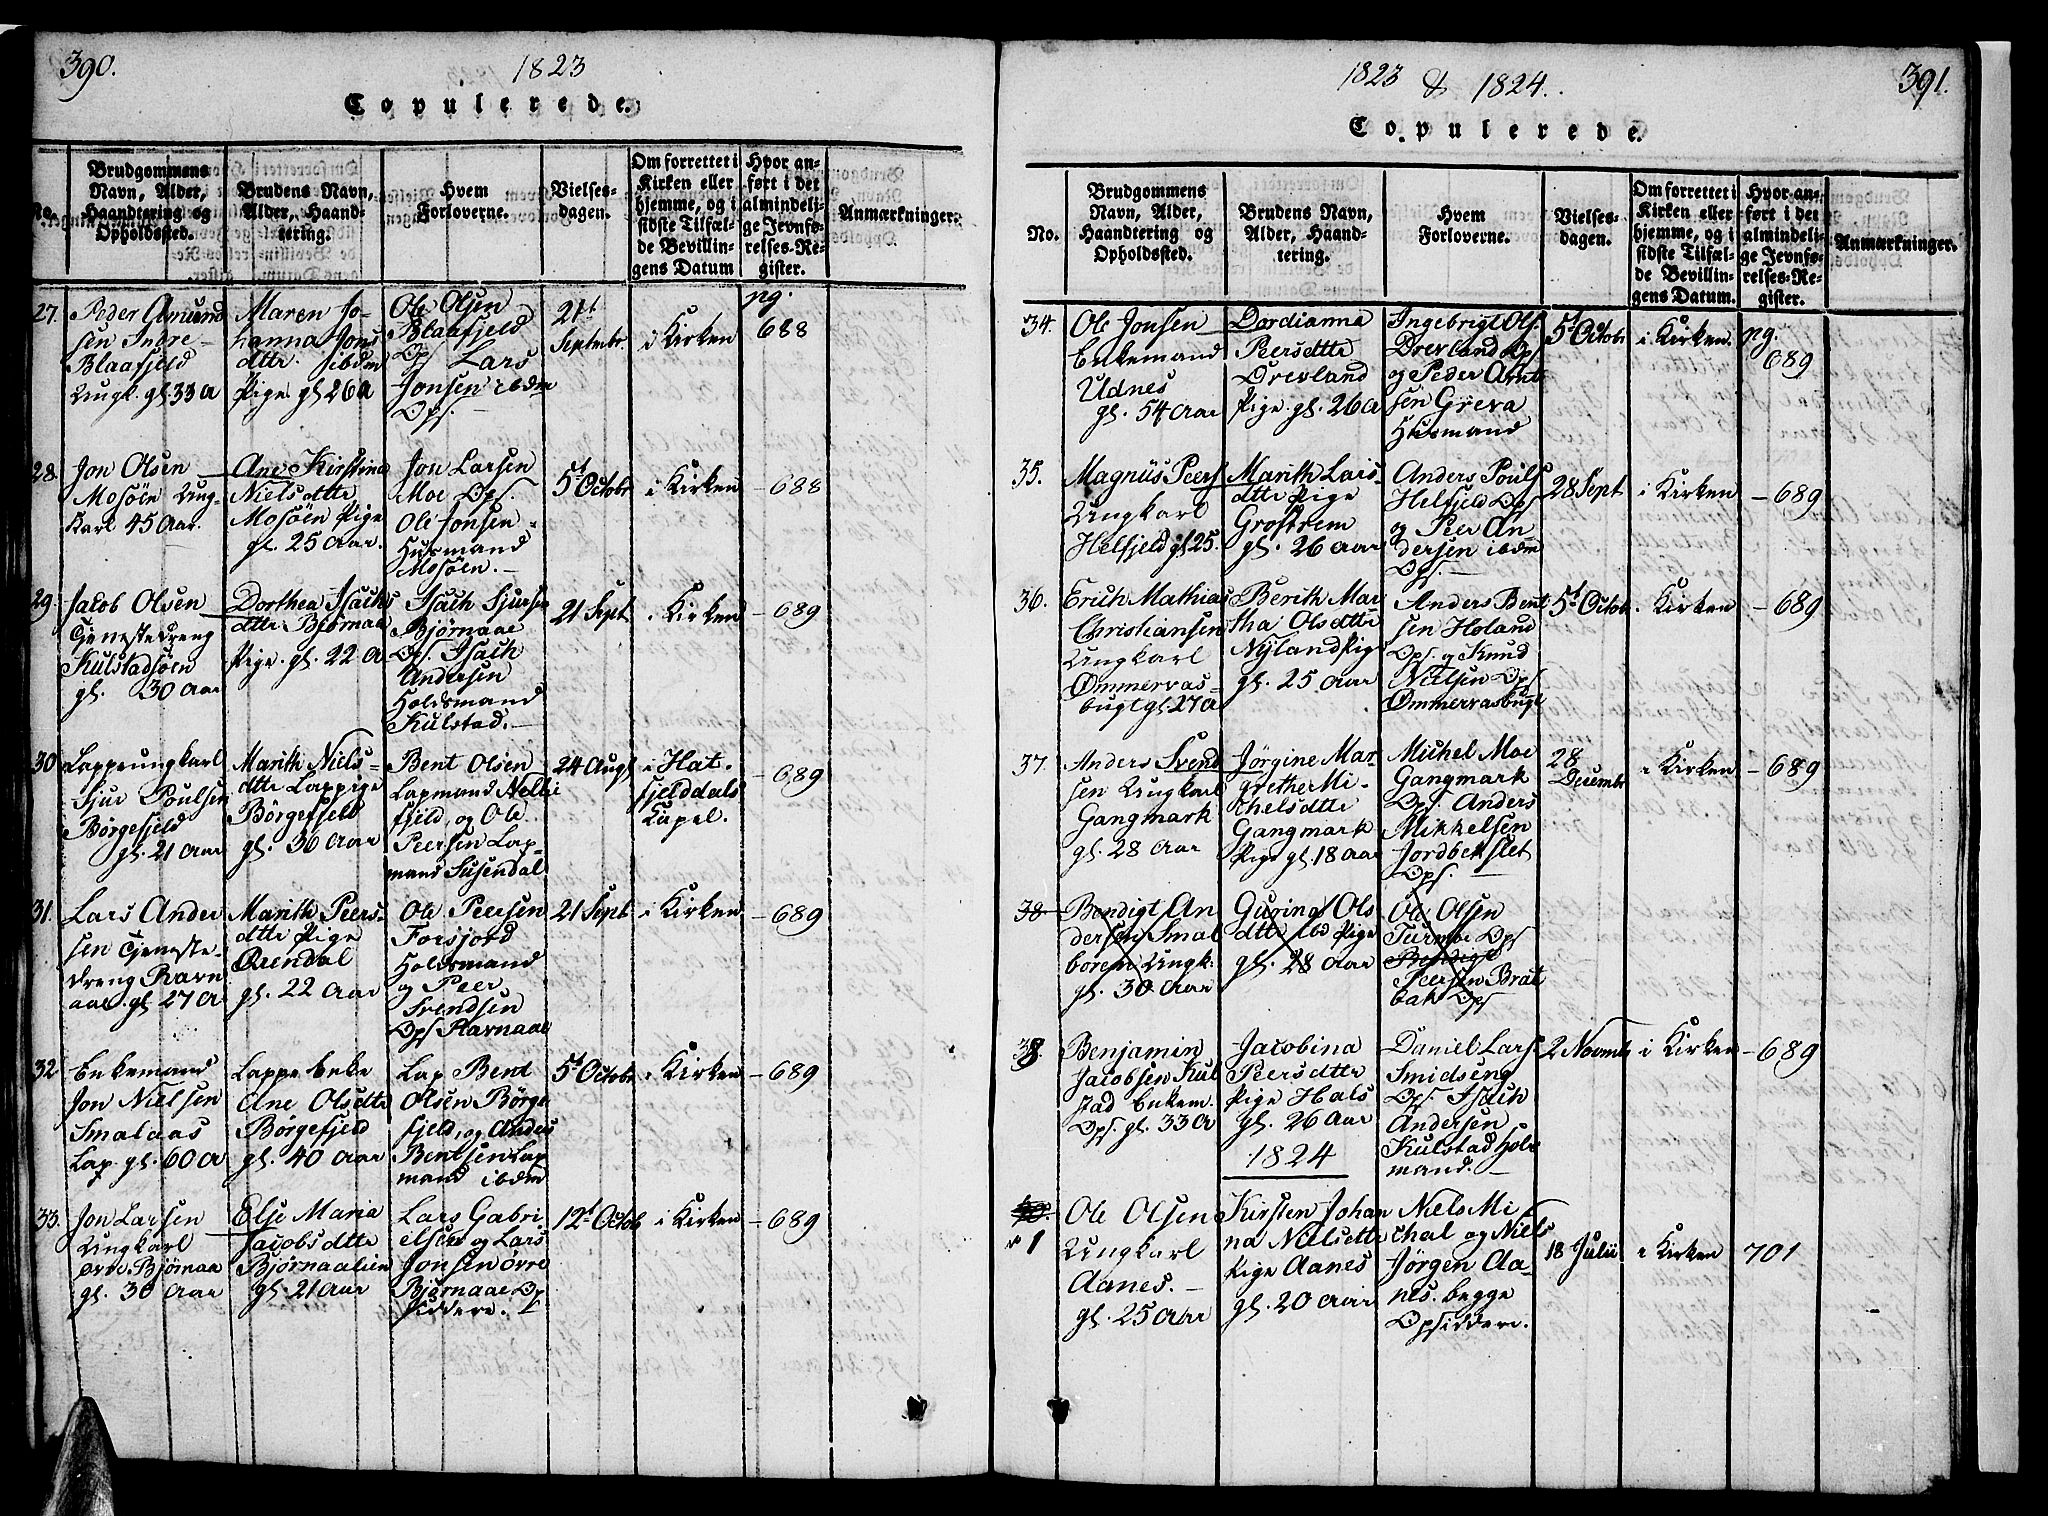 390.
1823
Copulerede.
No.
Brudgommens
Navn, Alder,
Haandtering og
Opholdssted.
Brudens Navn,
Alder, Haand-
tering.
Hvem
Forloverne.
Vielses-
dagen.
Om forrettet i
Kirken eller
hjemme, og i
sidste Tilfæl-
de Bevillin-
gens Datum
Hvor an-
ført i det
almindeli-
ge Jevnfø-
relses-Re-
gister.
Anmærkninger.
27.
Peder Amund
sen Indre
Blaafjeld
Ungk. gl. 33 A
Maren Jo-
hanna Jons
dttr. ibdm
Pige gl 26 a
Ole Olsen
Blaafjeld
Ops Lars
Jonsen ibdm
Ops.
21t
Septembr.
i Kirken
pg.
688
28.
Jon Olsen
Mosöen Ung-
karl 45 Aar.
Ane Kirstina
Nielsdttr
Mosöen Pige
gl. 25 Aar.
Jon Larsen
Moe Ops.
Ole Jonsen
Husmand
Mosöen.
5t Octobr
i Kirken
688
29.
Jacob Olsen
Tjenestedreng
Kulstadsöen
gl. 30 Aar
Dorthea Isachs
dttr Bjørnaae
Pige. gl. 22 A
Isach Sjursen
Bjørnaae
Ops. Isach
Andersen
Holdsmand
Kulstad.
21 Sept
i Kirken
689
30
Lappeungkarl
Sjur Poulsen
Børgefjeld
gl. 21 Aar
Marith Niels-
dttr Lappige
Børgefjeld
gl. 36 Aar
Bent Olsen
Lapmand
fjeld, og Ole
Peersen Lap-
mand Susendal
24 Augs
i Hat-
fjelddals
Kapel.
689
31.
Lars Ander
sen Tjeneste-
dreng Ravn-
aae. gl. 27 A
Marith Peers-
dttr Pige
Ørendal
gl. 22 Aar
Ole Peersen
Forsjord
Holdsmand
og Peer
Svendsen
Ops Ravnaae
21 Sept
i Kirken
689
32
Enkemand
Jon Nielsen
Smalaas
Lap. gl. 60 A
Lappe Enke
Ane Olsdttr
Børgefjeld
gl. 40 Aar
Lap Bent
Olsen Børge
fjeld, og Andes
Bentsen Lap
mand ibdm
5t Octobr
i Kirken
689
33.
Jon Larsen
Ungkarl
øvre Bjørnaa
gl. 30 Aar
Else Maria
Jacobsdttr
Bjørnaalien
gl. 21 Aar
Lars Gabri
elsen og Lars
Jonsen øvre
Bjørnaae Op
siddere.
12t Octob
i Kirken
689
1823 & 1824.
391.
Copulerede.
No.
Brudgommens
Navn, Alder,
Haandtering og
Opholdssted.
Brudens Navn,
Alder, Haand-
tering.
Hvem
Forloverne.
Vielses-
dagen.
Om forrettet i
Kirken eller
hjemme, og i
sidste Tilfæl-
de Bevillin-
gens Datum.
Hvor an-
ført i det
almindeli-
ge Jevnfø-
relses-Re-
gister.
Anmærkninger.
34.
Ole Jonsen
Enkemand
Udnes
gl. 54 Aar
Dordianna
Peersdttr
Drevland
Pige. gl. 26 A
Ingebrigt Ols.
Drevland Ops
og Peder Arnt
sen Greva
Husmand
5t Octobr
i Kirken.
pg.
689
35.
Magnüs Peers
Ungkarl
Helfjeld gl 25.
Marith Lars-
dttr Pige
Grostrem
gl. 26 Aar
Anders Pouls
Helfjeld Ops
og Peer An
dersen ibdm
Ops.
28 Sept
i Kirken
689
36.
Erich Mathias
Christiansen
Ungkarl
Ømmervas-
bugt gl. 27 A
Berith Mar
tha Olsdttr
Nÿland Pige
gl. 25 Aar
Anders Bent
sen Holand
Ops. og Knud
Nielsen Ops
Ømmervasbugt
5t Octob.
i Kirken
689
37.
Anders Svend
sen Ungkarl
Gangmark
gl. 28 Aar
Jørgine Mar-
grethe Mi-
chelsdttr
Gangmark
Pige gl. 18 Aar
Michel Moe
Gangmark
Ops. Anders
Mikkelsen
Jordbekslet
Ops.
28
Decembr
i Kirken
689
38.
Bendigt An
dersen Smal
borem Ungk.
gl. 30 Aar
Gurina Ols
dttr ibd Pige
gl. 28 Aar
Ole Olsen
Turmoe Ops
Bendigt
Peersen Brat
bak Ops
38.
Benjamin
Jacobsen Kul
stad Enkem.
Ops. gl. 33 A
Jacobina
Peersdttr
Pige Hals
gl. 26 Aar
Daniel Lars
Smidseng
Ops. Isach
Andersen
Kulstad Hols
mand.
2 Novmb
i Kirken
689
1824
1
Ole Olsen
Ungkarl
Aanes.
gl. 25 Aar
Kirsten Johan
na Nielsdttr
Pige Aanes
gl. 20 Aar
Niels Mi
chal og Niels
Jörgen Aa-
nes. begge
Opsiddere.
18 Julii
i Kirken
701